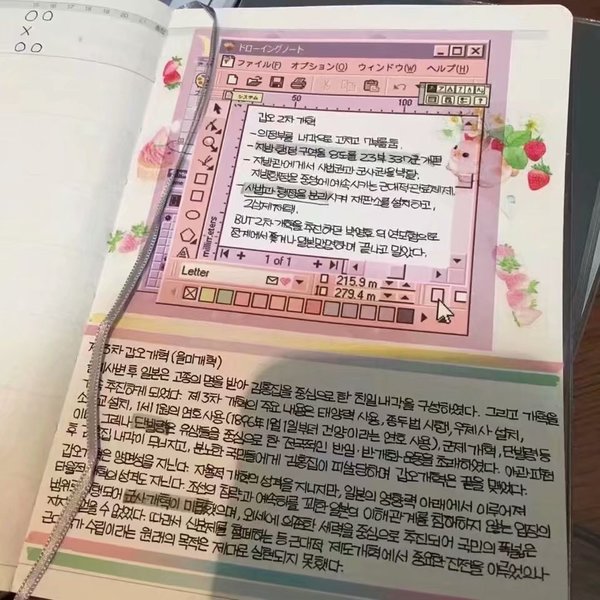 15 16 17 18 19 20
ドローイングノート
ファイル(F) オプション(O) ウィンドウ(W) ヘルプ(H)
システム
50 100
갑오 2차 개혁
-의정부를 내각으로 고치고 7부를 둠.
-지방행정 구역을 8도를 23부 337군 개편
-지방관에게서 사법권과 군사권을 박탈.
지방행정을 중앙에 예속시키는 근대적 관료체제.
-사법과 행정을 분리시켜 재판소를 설치하고,
2심제 채택.
BUT 2차 개혁을 추진하던 박영효 역 연모함으로
정계에서 쫓겨나 일본 망명하며 끝나고 말았다.
1 of 1
millimeters
Letter
215.9 m
279.4 m
3차 갑오개혁 (을미개혁)
사변 후 일본은 고종의 명을 받아 김홍집을 중심으로 한 친일 내각을 구성하였다. 그리고 개혁을
추진하게 되었다. 제 3차 개혁의 주요 내용은 태양력 사용, 종두법 시행, 우체사 설치,
설치, 1세 1원의 연호 사용 (1896年 1월 1일부터 건양이라는 연호 사용), 군제 개혁, 단발령 등
그러나 단발령은 유생들을 중심으로 한 전국적인 반일·반개화 운동을 초래하였다. 아관파천
후 친일 내각이 무너지고, 분노한 국민들에게 김홍집이 피살당하며 갑오개혁은 끝을 맺었다.
갑오개혁은 양면성을 지닌다. 자율적 개혁의 성격을 지니지만, 일본의 영향력 아래에서 이루어져
타율적 개혁의 성격도 지닌다. 조선의 침략과 예속화를 꾀한 일본의 이해관계를 침해하지 않는 일정의
범위 되어 군사 개혁이 미흡했으며, 외세에 의존한 세력을 중심으로 추진되어 국민의 폭넓은
지지 을 수 없었다. 따라서 신분제를 철폐하는 등 근대적 제도개혁에서 중요한 진전을 이루었으나
근대 가 수립이라는 원래의 목적은 제대로 실현되지 못했다.